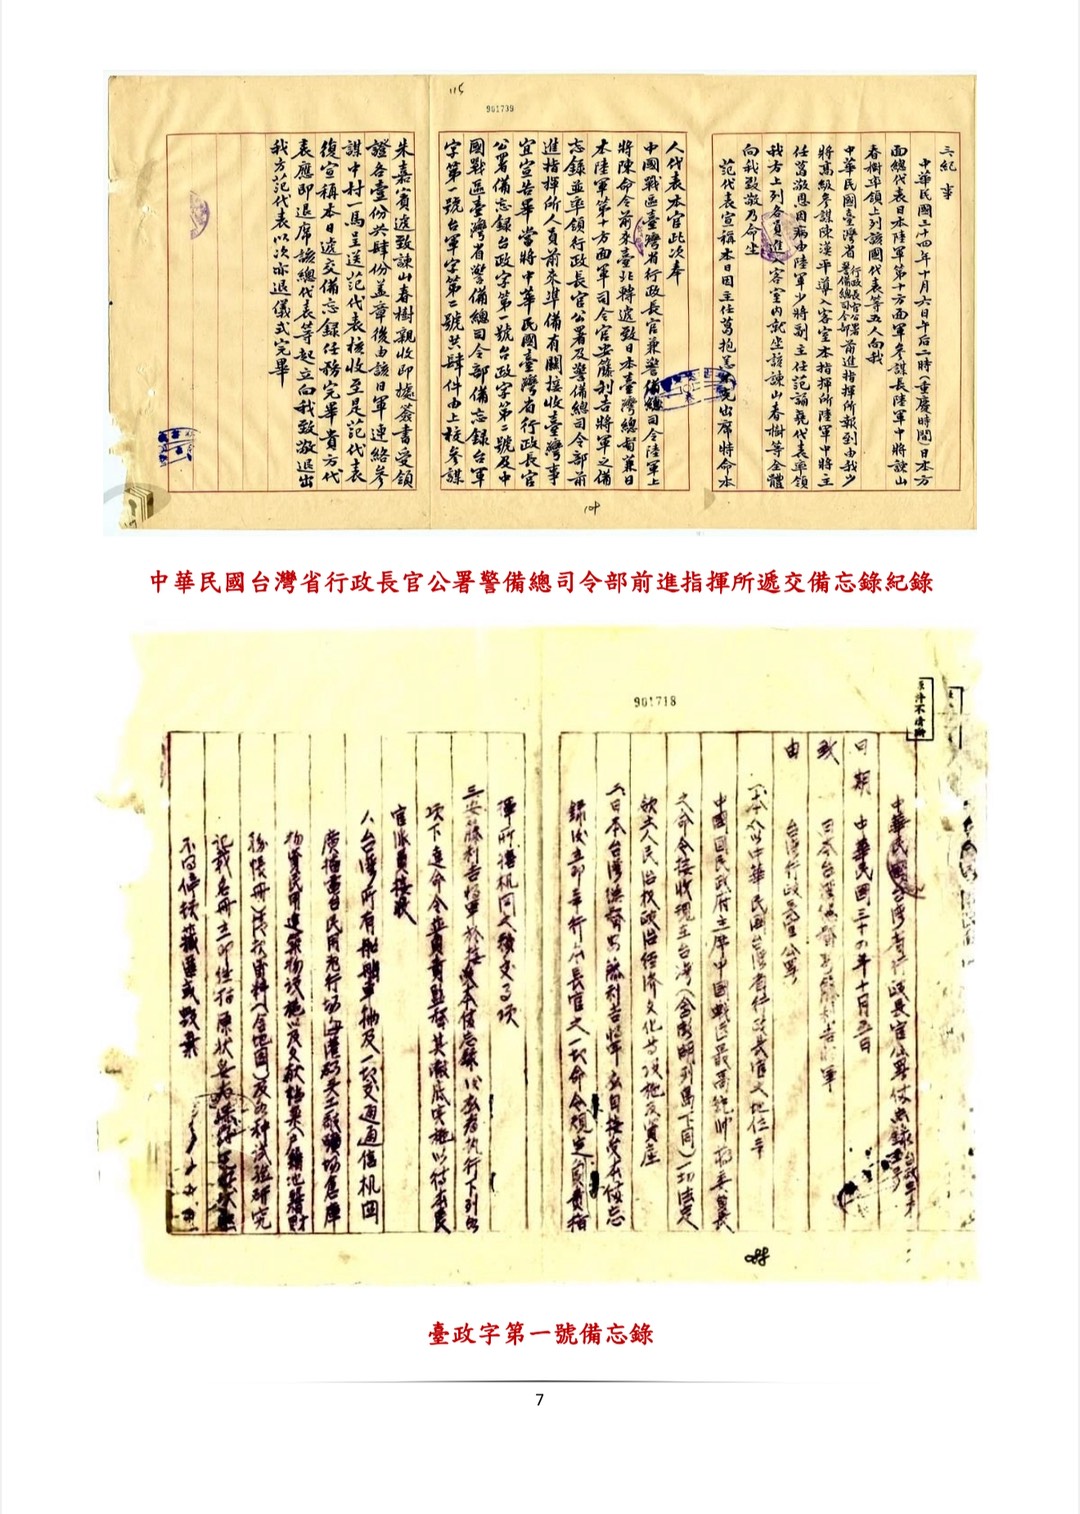 115
901739
三紀事
中華民國三十四年十月六日午后二時(重慶時間)日本方
面總代表日本陸軍第十方面軍參謀長陸軍中將諫山
春樹率領上列該國代表等五人向我
中華民國臺灣省行政長官公署警備總司令部前進指揮所報到由我少
將高級參謀陳漢平導入客室本指揮所陸軍中將主
任葛敬恩因病由陸軍少將副主任范誦堯代表率領
我方上列各員進入客室內就坐該諫山春樹等全體
向我致敬乃命坐
范代表宣稱本日因主任葛抱恙不克出席特命本
人代表本官此次奉
中國戰區臺灣省行政長官兼警備總司令陸軍上
將陳命令前來臺北轉遞致日本臺灣總督兼日
本陸軍第十方面軍司令官安藤利吉將軍之備
忘錄並率領行政長官公署及警備總司令部前
進指揮所人員前來準備有關接收臺灣事
宜宣告畢當將中華民國臺灣省行政長官
公署備忘錄台政字第一號台政字第二號及中
國戰區臺灣省警備總司令部備忘錄台軍
字第一號台軍字第二號共肆件由上校參謀
朱嘉賓遞致諫山春樹親收即據簽書受領
證各壹份共肆份蓋章後由該日軍連絡參
謀中村一馬呈送范代表核收至是范代表
復宣稱本日遞交備忘錄任務完畢貴方代
表應即退席該總代表等起立向我致敬退出
我方范代表以次亦退儀式完畢
109
中華民國台灣省行政長官公署警備總司令部前進指揮所遞交備忘錄紀錄
901718
原件不清晰
中華民國台灣省行政長官公署備忘錄
日期 中華民國三十四年十月五日
致 日本台灣總督安藤利吉將軍
由 台灣行政長官公署
一、本人以中華民國台灣省行政長官之地位奉
中國國民政府主席中國戰區最高統帥蔣委員長
之命令接收現主台灣(含澎湖列島下同)一切法定
領土人民治權政治經濟文化等設施及資產
二、日本台灣總督安藤利吉將軍應自接受本備忘
錄後立即奉行本長官之一切命令規定負責指
揮所屬机関之移交事項
三、安藤利吉將軍於接受本備忘錄後應執行下列各
項下達命令並負責監督其澈底實施以待本長
官派員接收
人台灣所有船舶車輛及一切交通通信机関
廣播電台民用飛行場海港碼頭工廠礦場倉庫
物資民用建築物設施以及文献檔案戶籍地籍財
務帳冊資料(含地圖)及各種試驗研究
記載名冊立即維持原狀妥為保存
不得停頓藏匿或毀棄
088
臺政字第一號備忘錄
7